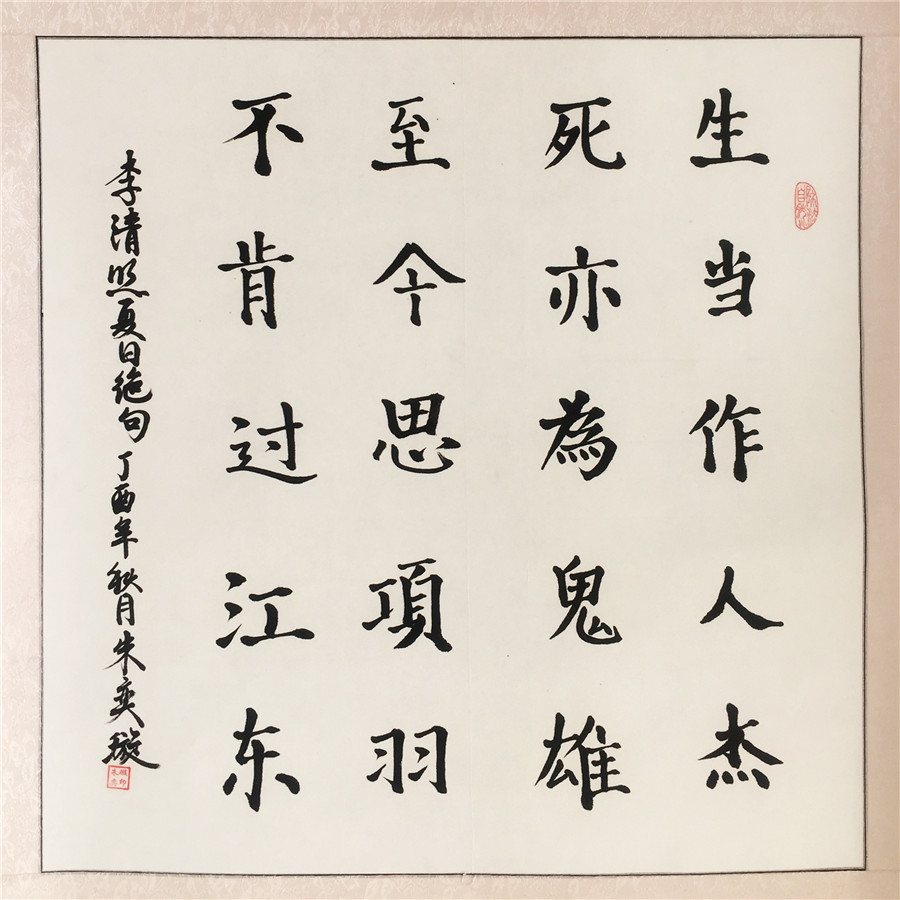 生当作人杰
死亦為鬼雄
至今思項羽
不肯过江东
李清照夏日绝句丁酉年秋月朱奕璇